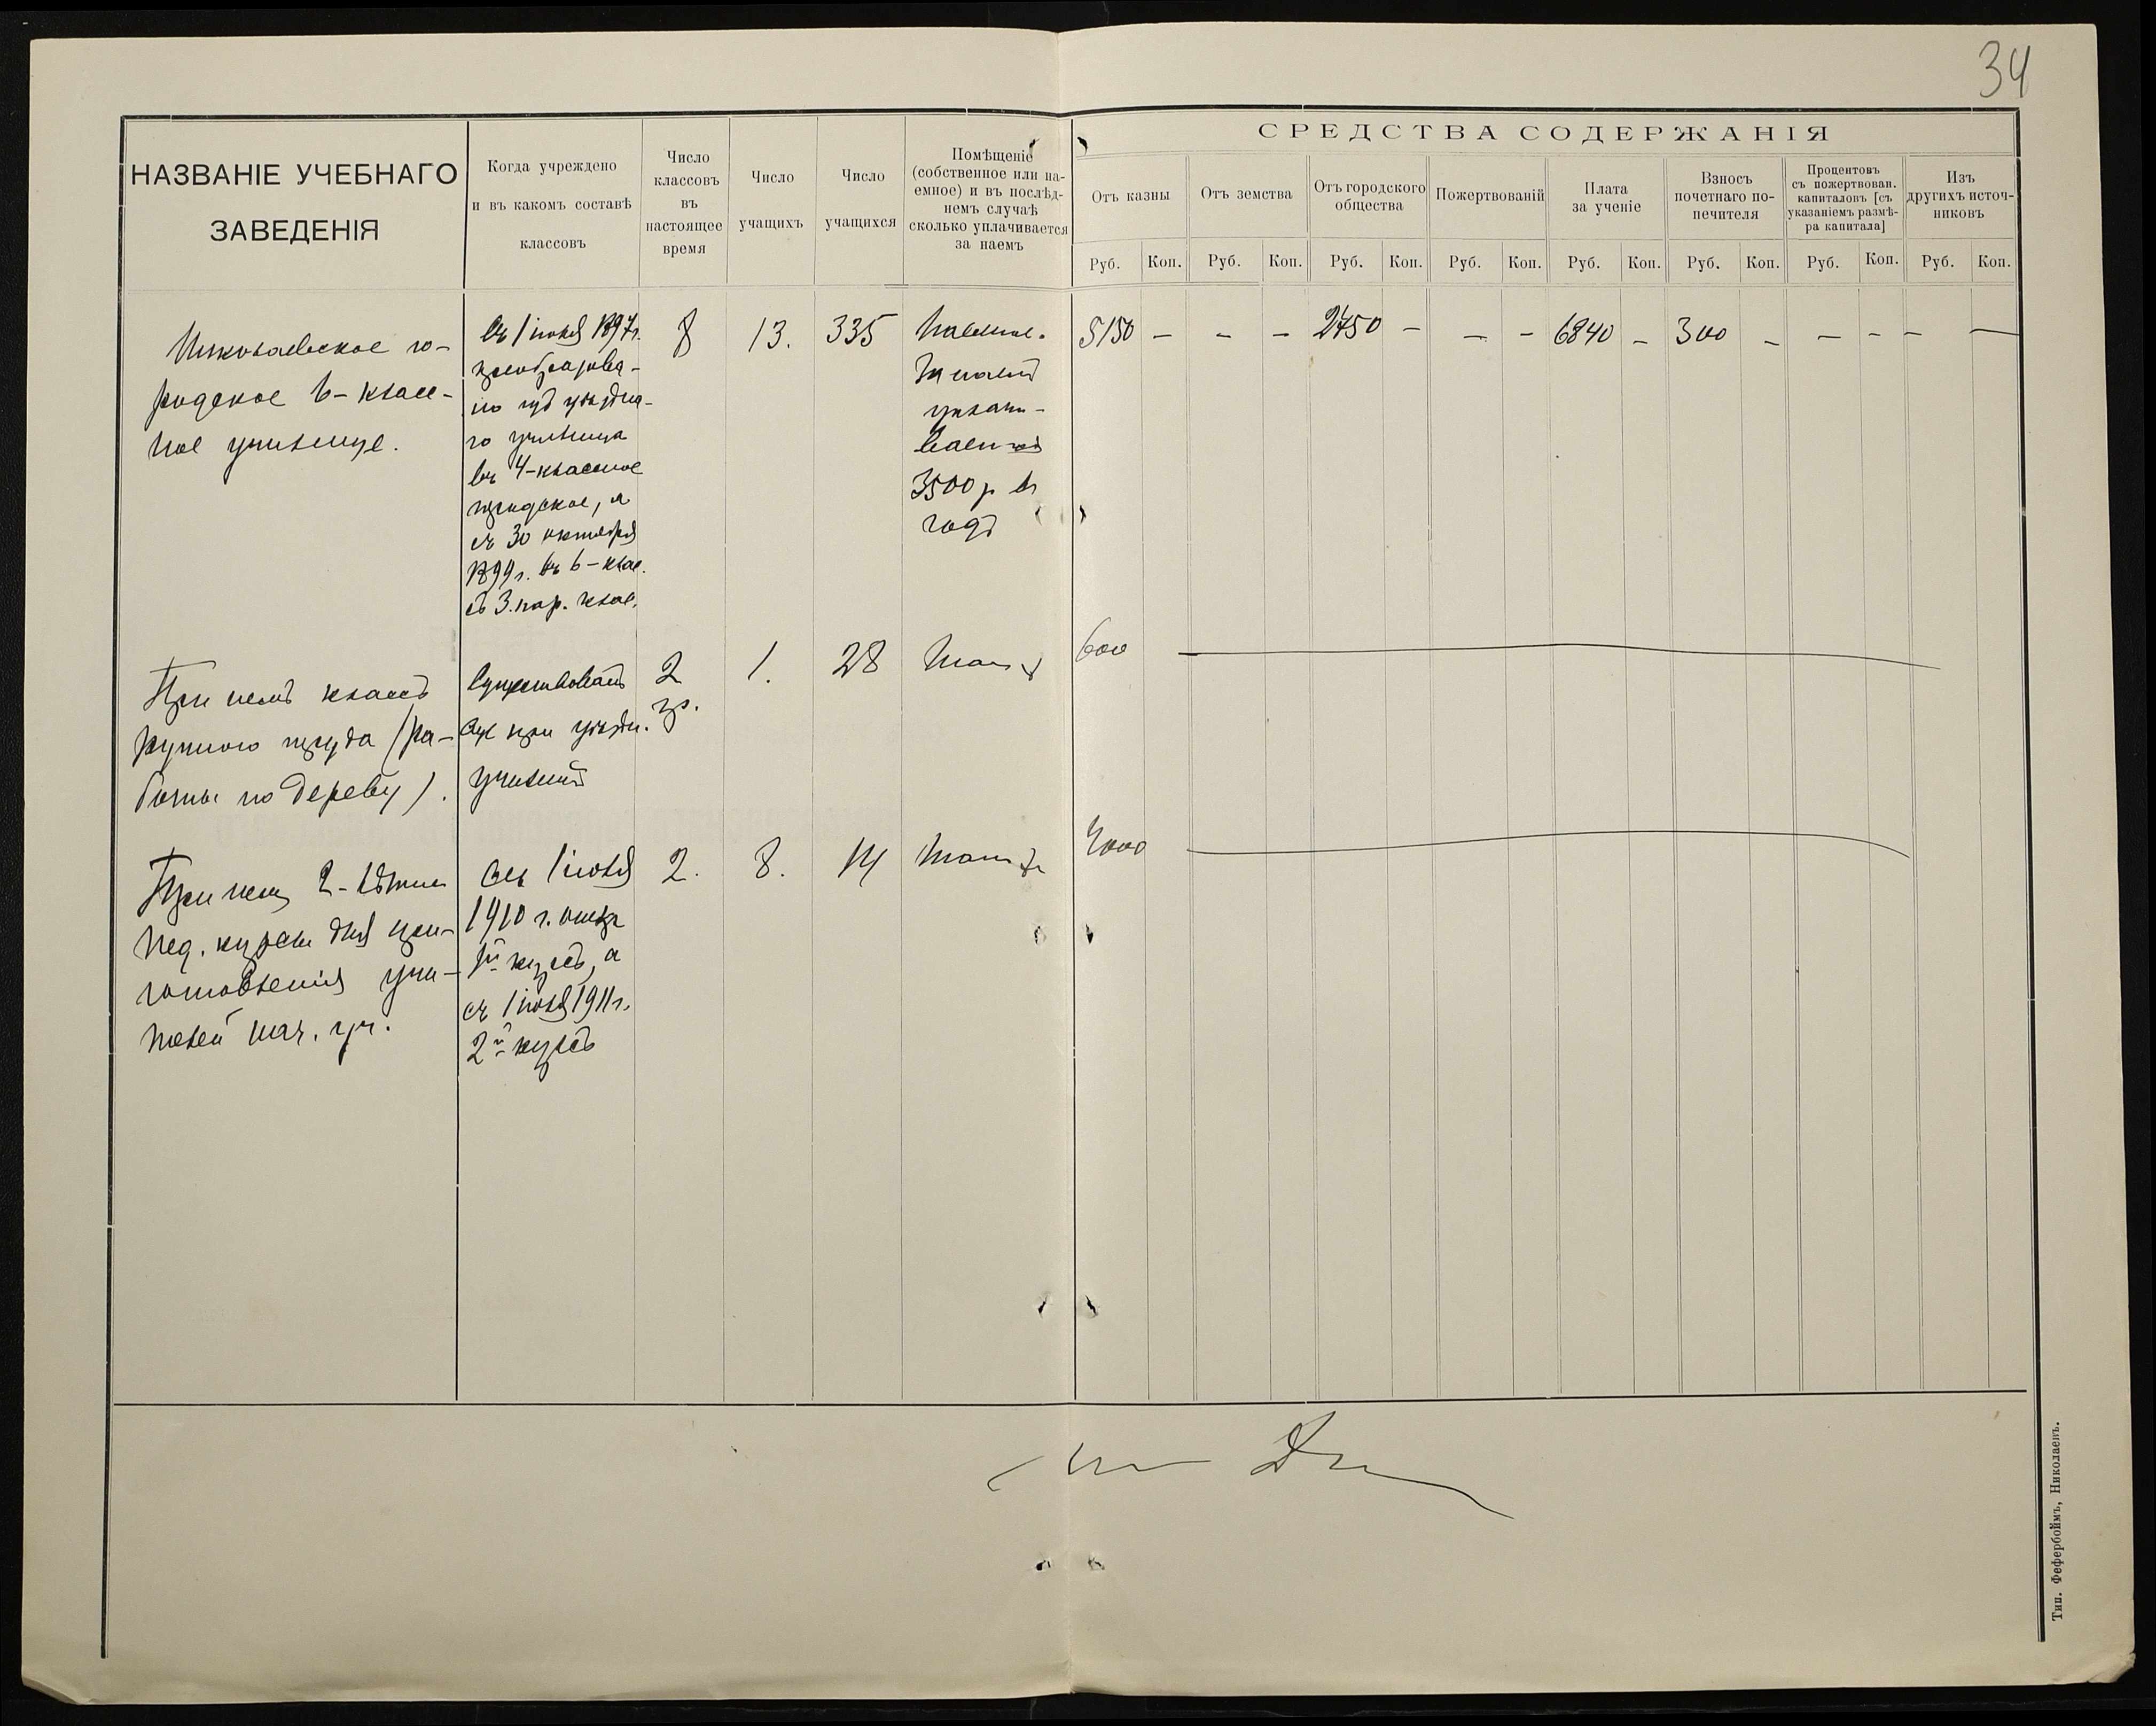 34
НАЗВАНІЕ УЧЕБНАГО
ЗАВЕДЕНІЯ
Когда учреждено
и въ какомъ составѣ
классовъ
Число
классовъ
въ
настоящее
время
Число
учащихъ
Число
учащихся
Помѣщеніе
(собственное или на-
емное) и въ послѣд-
немъ случаѣ
сколько уплачивается
за наемъ
СРЕДСТВА СОДЕРЖАНІЯ
Отъ казны
Отъ земства
Отъ городского
общества
Пожертвованій
Плата
за ученіе
Взносъ
почетнаго по-
печителя
Процентовъ
съ пожертвован.
капиталовъ [съ
указаніемъ размѣ-
ра капитала]
Изъ
другихъ источ-
никовъ
Руб. Коп. Руб. Коп. Руб. Коп. Руб. Коп. Руб. Коп. Руб. Коп. Руб. Коп. Руб. Коп.
Николаевское го-
родское 6-класс-
ное училище.
Съ 1 іюля 1897г.
преобразова-
но изъ уѣздна-
го училища
въ 4-классное
городское, а
съ 30 октября
1899г. въ 6-клас.
съ 3. пар. клас.
8
13.
335
Наемное.
За наемъ
уплачи-
вается
3500 р въ
годъ
5150 — — — 2450 — — — 6840 — 300 — — — — —
При немъ классъ
ручного труда (ра-
боты по дереву).
Существовалъ
еще при уѣздн.
училищѣ
2
гр.
1.
28
600
При немъ 2-лѣтніе
пед. курсы для при-
готовленія учи-
телей нач. уч.
Съ 1 іюля
1910 г. откр
1й курсъ, а
съ 1 іюля 1911г.
2й курсъ
2.
8.
14
Тип. Фефербоймъ, Николаевъ.